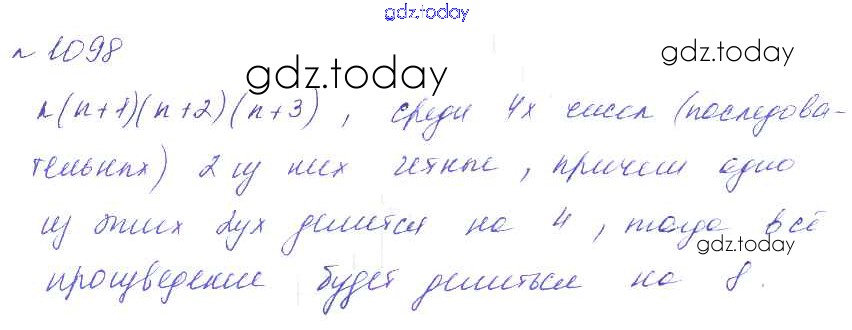 gdz.today
№ 1098
gdz.today
gdz.today
n(n+1)(n+2)(n+3), среди 4х чисел (последова-
тельных) 2 из них четные, причем одно
из этих 2ух делится на 4, тогда всё
gdz.today
gdz.today
произведение будет делиться на 8.